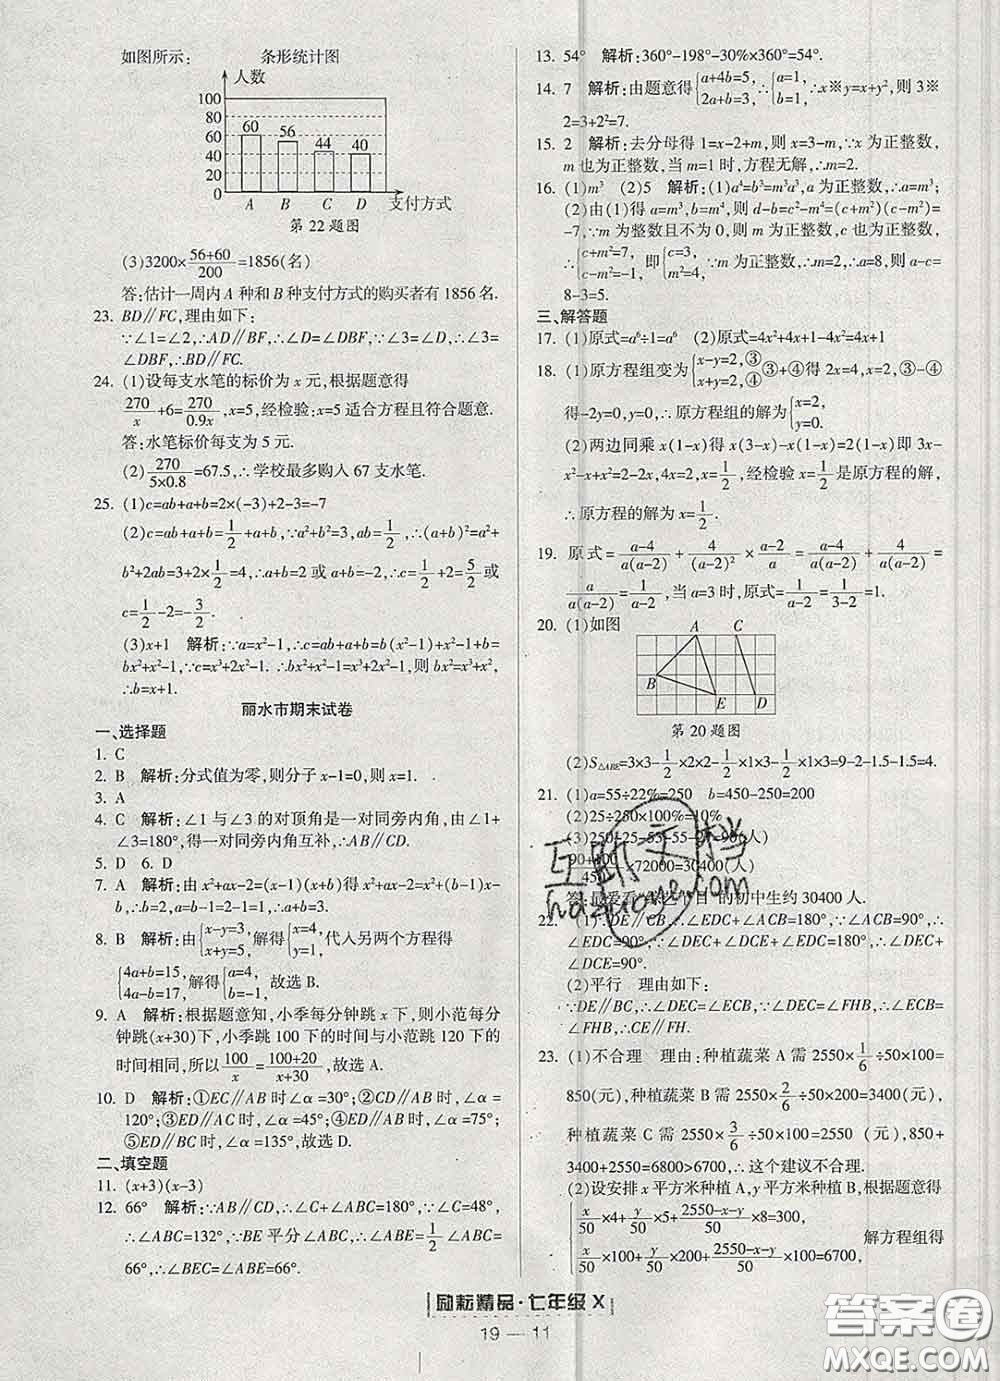 如图所示： 条形统计图
人数
100
80
60
40
20
0
60 56 44 40
A B C D 支付方式
第22题图
(3)3200×(56+60)/200=1856(名)
答:估计一周内A种和B种支付方式的购买者有1856名.
23. BD∥FC,理由如下:
∵∠1=∠2,∴AD∥BF,∴∠3=∠DBF,∵∠3=
∠DBF,∴BD∥FC.
24. (1)设每支水笔的标价为x元,根据题意得
270/x+6=270/0.9x,x=5,经检验:x=5适合方程且符合题意.
答:水笔标价每支为5元.
(2)270/(5×0.8)=67.5,∴学校最多购入67支水笔.
25. (1)c=ab+a+b=2×(-3)+2-3=-7
(2)c=ab+a+b=1/2+a+b,∵a²+b²=3,ab=1/2,∴(a+b)²=a²+
b²+2ab=3+2×1/2=4,∴a+b=2或a+b=-2,∴c=1/2+2=5/2或
c=1/2-2=-3/2.
(3)x+1 解析:∵a=x²-1,∴c=ab+a+b=b(x²-1)+x²-1+b=
bx²+x²-1,∵c=x³+2x²-1.∴bx²+x²-1=x³+2x²-1,则bx²=x³+x²,
∴b=x+1.
丽水市期末试卷
一、选择题
1. C
2. B 解析:分式值为零,则分子x-1=0,则x=1.
3. A
4. C 解析:∠1与∠3的对顶角是一对同旁内角,由∠1+
∠3=180°,得一对同旁内角互补,∴AB∥CD.
5. D 6. D
7. A 解析:由x²+ax-2=(x-1)(x+b)得x²+ax-2=x²+(b-1)x-
b,∴b=2,a=b-1=2-1=1,∴a+b=3.
8. B 解析:由{x-y=3,x+y=5,解得{x=4,y=1,代入另两个方程得
{4a+b=15,4a-b=17,解得{a=4,b=-1,故选B.
9. A 解析:根据题意知,小季每分钟跳x下,则小范每分
钟跳(x+30)下,小季跳100下的时间与小范跳120下的
时间相同,所以100/x=(100+20)/(x+30),故选A.
10. D 解析:①EC∥AB时,∠α=30°;②ED∥AB时,∠α=
120°;③ED∥AC时,∠α=45°;④ED∥AB时,∠α=75°;
⑤ED∥BC时,∠α=135°,故选D.
二、填空题
11. (x+3)(x-3)
12. 66° 解析:∵AB∥CD,∴∠C+∠ABC=180°,∵∠C=48°,
∴∠ABC=132°,∵BE平分∠ABC,∴∠ABE=1/2∠ABC=
66°,∴∠BEC=∠ABE=66°.
13. 54° 解析:360°-198°-30%×360°=54°.
14. 7 解析:由题意得{a+4b=5,2a+b=3,∴{a=1,b=1,∴x※y=x+y²,则3※
2=3+2²=7.
15. 2 解析:去分母得1=x-2+m,则x=3-m,∵x为正整数,
m也为正整数,当m=1时,方程无解,∴m=2.
16. (1)m³ (2)5 解析:(1)a⁴=b³=m³a³,a为正整数,∴a=m³;
(2)由(1)得a=m³,b=m⁴,则d-b=c²-m⁴=(c+m²)(c-m²)=
-7,∵m为整数且不为0,则m为正整数,c也为正整数,
∴{c+m²=7,c-m²=-1,即{c=3,m²=4,∵m为正整数,∴m=2,∴a=8,则a-c=
8-3=5.
三、解答题
17. (1)原式=a⁶÷1=a⁶ (2)原式=4x²+4x+1-4x²=4x+1
18. (1)原方程组变为{x-y=2,③x+y=2,④③+④得2x=4,x=2,③-④
得-2y=0,y=0,∴原方程组的解为{x=2,y=0.
(2)两边同乘x(1-x)得x(3-x)-x(1-x)=2(1-x)即3x-
x²-x+x²=2-2x,4x=2,x=1/2,经检验x=1/2是原方程的解,
∴原方程的解为x=1/2.
19. 原式=(a-4)/a(a-2)+4/(a-2)²×(a-2)/a=(a-4)/a(a-2)+4/a(a-2)=
a/a(a-2)=1/(a-2),当a=3时,原式=1/(3-2)=1.
20. (1)如图
A C
B
E D
第20题图
(2)S△ABE=3×3-1/2×2×2-1/2×1×3-1/2×1×3=9-2-1.5-1.5=4.
21. (1)a=55÷22%=250 b=450-250=200
(2)25÷250×100%=10%
答:最爱看“ 目”的初中生约30400人.
22. (1)∵DE∥CB,∴∠EDC+∠ACB=180°,∵∠ACB=90°,∴
∠EDC=90°,∵∠EDC+∠DCE+∠DEC=180°,∴∠DEC+
∠DCE=90°.
(2)平行 理由如下:
∵DE∥BC,∴∠DEC=∠ECB,∵∠DEC=∠FHB,∴∠ECB=
∠FHB,∴CE∥FH.
23. (1)不合理 理由:种植蔬菜A需2550×1/6÷50×100=
850(元),种植蔬菜B需2550×2/6÷50×200=3400(元),
种植蔬菜C需2550×3/6÷50×100=2550(元),850+
3400+2550=6800>6700,∴这个建议不合理.
(2)设安排x平方米种植A,y平方米种植B,根据题意得
{x/50×4+y/50×5+(2550-x-y)/50×8=300,
x/50×100+y/50×200+(2550-x-y)/50×100=6700, 解方程组得
励耘精品·七年级X
19 — 11
答案圈
MXQE.COM